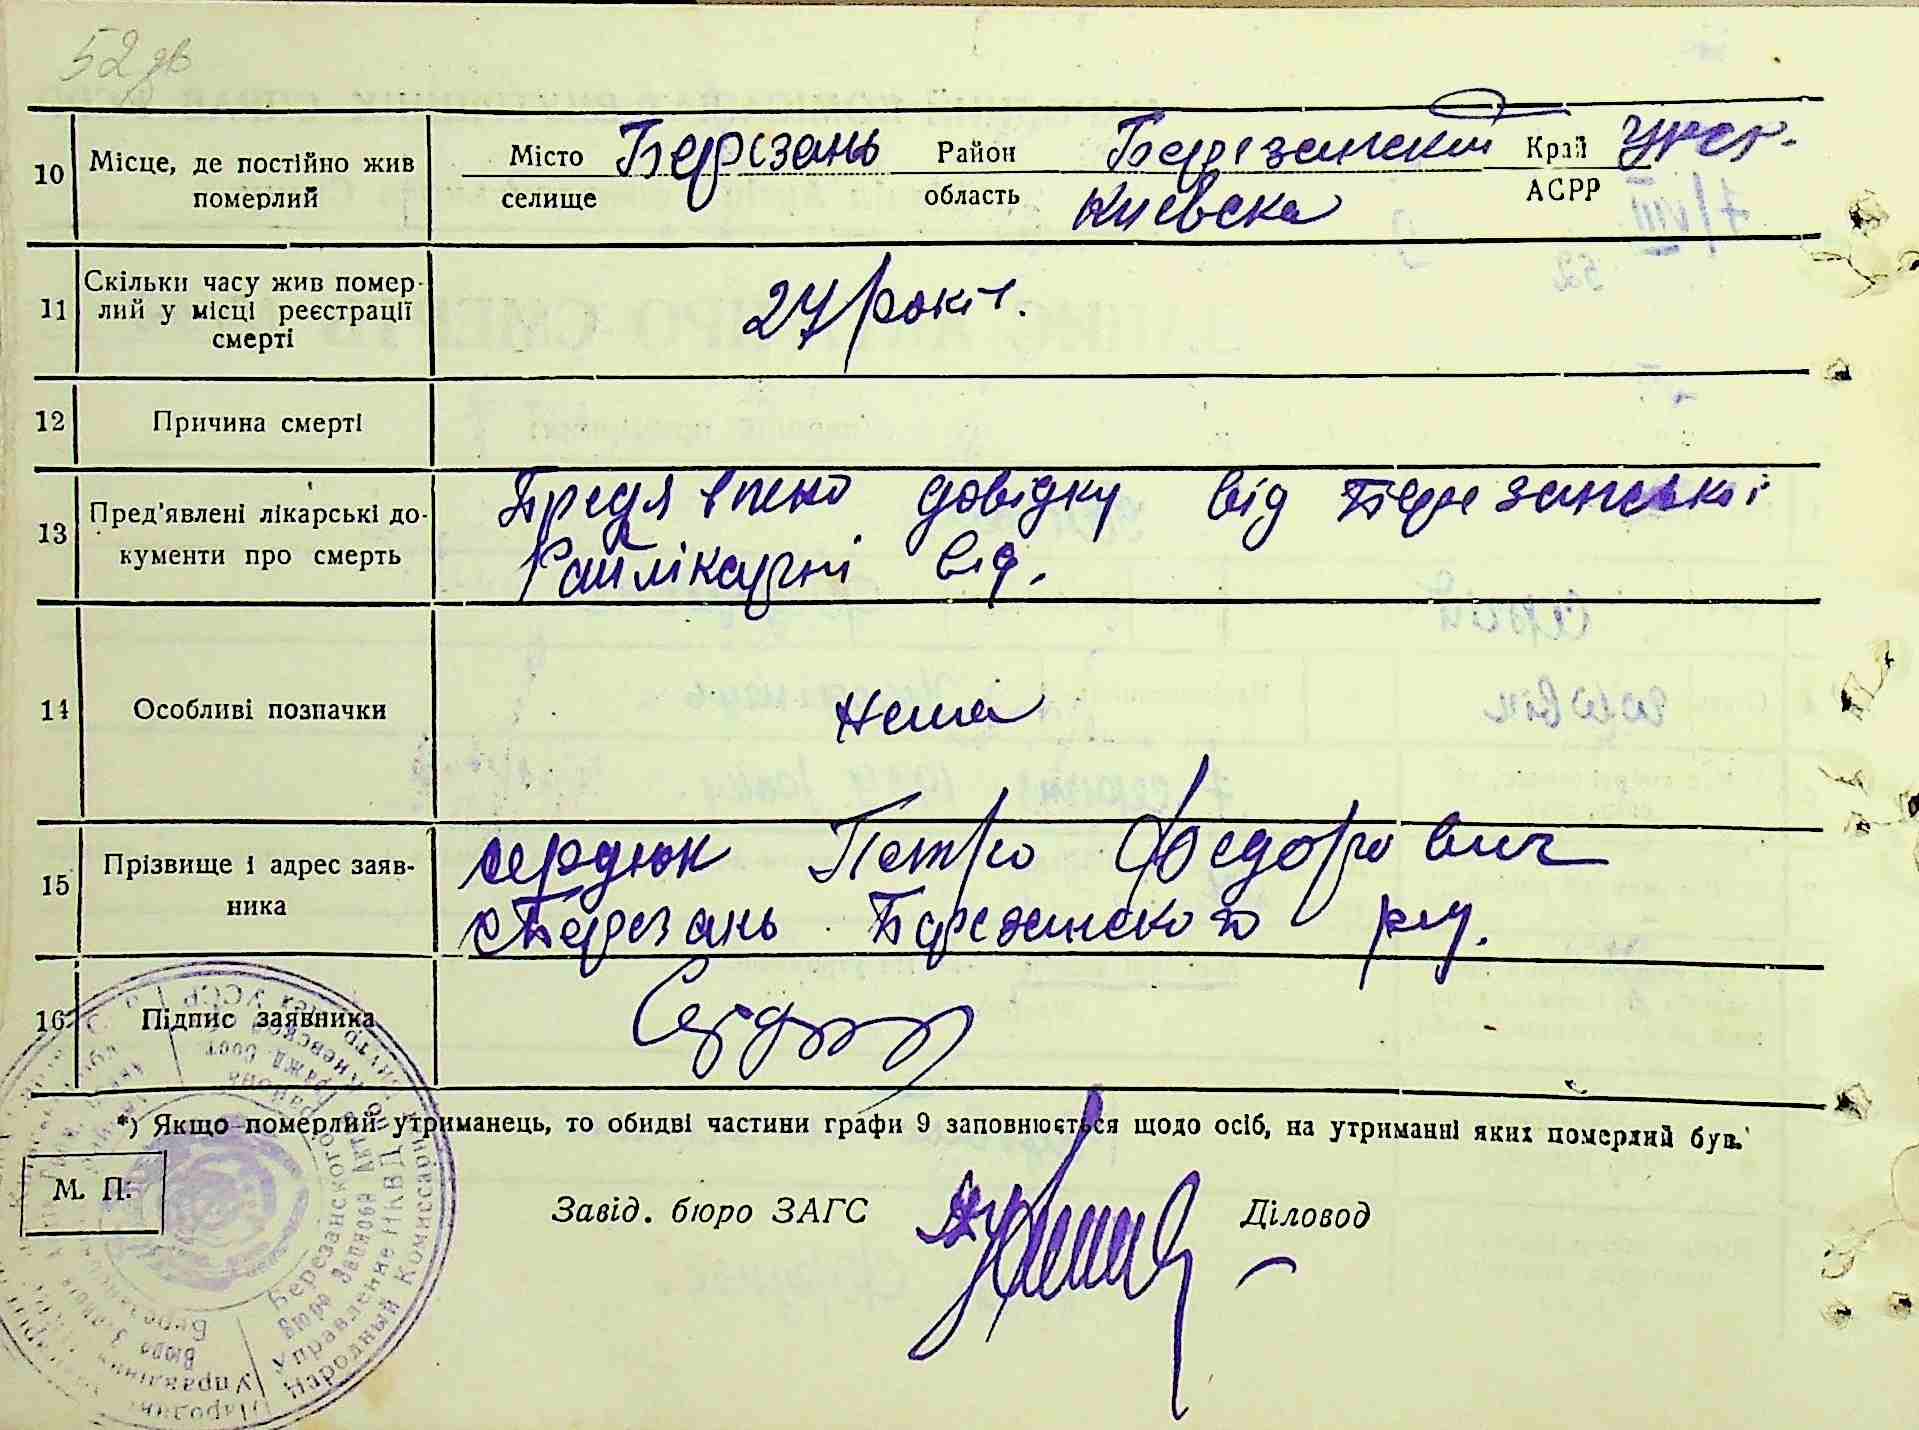 52 зв
10 Місце, де постійно жив померлий Місто селище Березань Район область Березанский Киевска Край АСРР
11 Скільки часу жив помер-
лий у місці реєстрації
смерті
27 років.
12 Причина смерті
13 Пред'явлені лікарські до-
кументи про смерть
довідку від Березанської
Райлікарні від.
14 Особливі позначки
Нема
15 Прізвище і адрес заяв-
ника
Сердюк Петро Федорович
с Березань Березанского р-ну.
16 Підпис заявника
*) Якщо померлий утриманець, то обидві частини графи 9 заповнюється щодо осіб, на утриманні яких померлий був.
М. П.
Завід. бюро ЗАГС Діловод
Березанского района
Бюро Записей Актов Гражд. Сост.
Управление НКВД по Киевской
Народный Комиссариат Внутр. Дел УССР